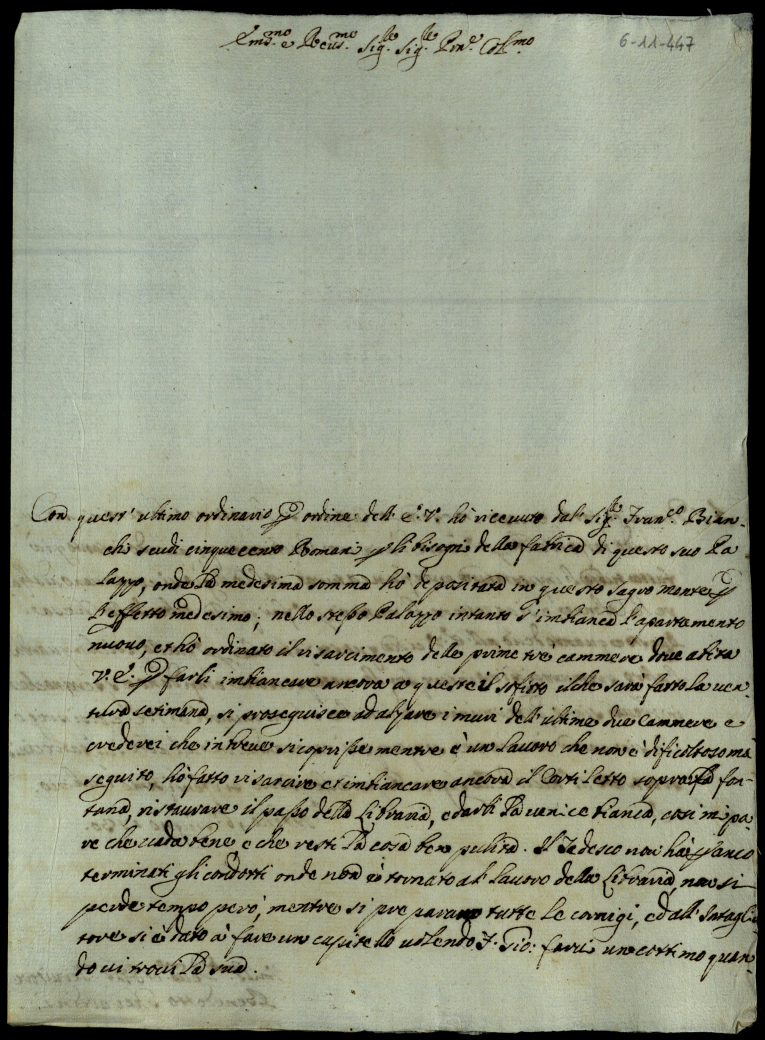 Em.mo e Reu.mo Sig.re Sig.re Pron.e Col.mo
6-11-447
Con quest' ultimo ordinario p ordine dell' E.V. hò riceuuto dal Sig.re Fran.co Bian-
chi scudi cinquecento Romani p li bisogni della fabrica di questo suo Pa
lazzo, onde la medesima somma hò depositata in questo sagro monte p
l'effetto medesimo; nello stesso Palazzo intanto s'imbianca l'apartamento
nuouo, et hò ordinato il risarcimento delle prime trè cammere doue abita
V.E. p farli imbiancare ancora a queste il sofitto il che sarà fatto la uen-
tura setimana, si proseguisce ad alzare i muri dell' ultime due Cammere e
crederei che in breue si coprisse mentre è un lauoro che non è dificoltoso mà
seguito, hò fatto risarcire et imbiancare ancora il Cortiletto sopra la fon-
tana, ristaurare il passo della Libraria, e darli la uernice bianca, cosi mi pa-
re che uada bene e che resti la cosa ben pulita. Il Tedesco non hà p anco
terminati gli condotti onde non è tornato al lauoro della Libraria, non si
perde tempo però, mentre si preparano tutte le cornigi, ed all' Intagli
tore si è dato à fare un capitello uolendo F. Gio: farui un cottimo quan-
do ui troui la sua.